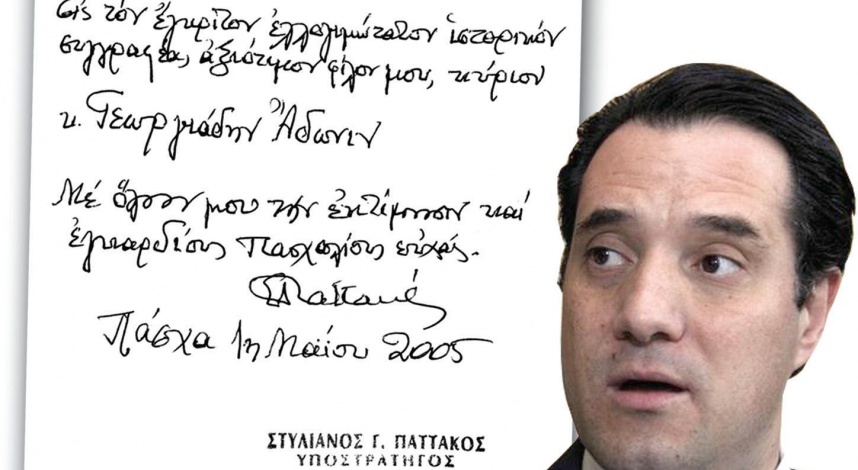 Εἰς τὸν ἔγκριτον ἐλλογιμώτατον ἱστορικόν
συγγραφέα, ἀξιότιμον φίλον μου, κύριον
κ. Γεωργιάδην Ἄδωνιν
Μέ ὅλην μου τήν ἐκτίμησιν καί
ἐγκαρδίους Πασχαλίους εὐχάς.
Παττακός
Πάσχα 1η Μαΐου 2005
ΣΤΥΛΙΑΝΟΣ Γ. ΠΑΤΤΑΚΟΣ
ΥΠΟΣΤΡΑΤΗΓΟΣ